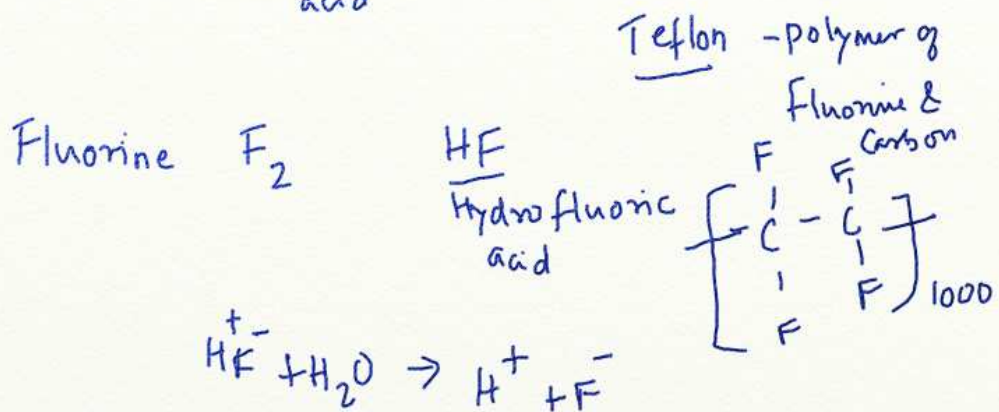 acid
Teflon - polymer of
Fluorine &
Carbon
Fluorine F₂ HF
Hydrofluoric
acid
F F
[ - C - C - ] 1000
F F
H⁺F⁻ + H₂O → H⁺ + F⁻